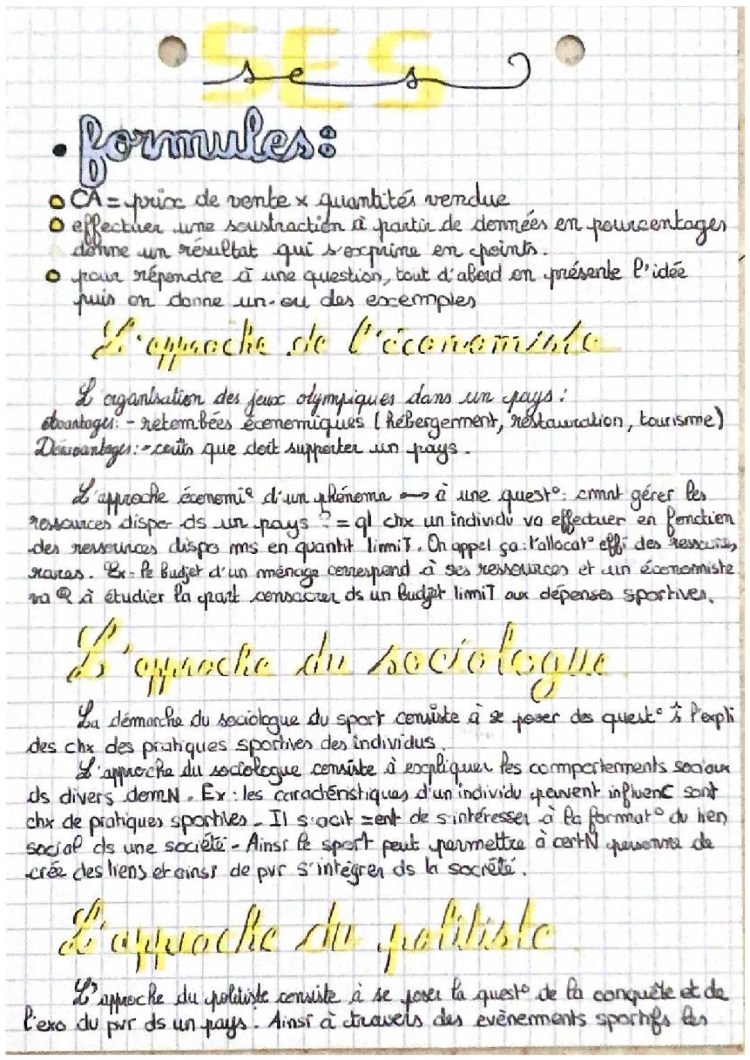 SES
ses
• formules:
CA = prix de vente x quantités vendue
effectuer une soustraction à partir de données en pourcentages
donne un résultat qui s'exprine en points.
pour répondre à une question, tout d'abord on présente l'idée
puis on donne un ou des exemples
L'approche de l'économiste
L'organisation des jeux olympiques dans un pays :
Avantages: - retombées économiques (hébergerment, réstauration, tourisme)
Désavantages: - coûts que doit supporter un pays.
L'approche économi^e d'un phénomn → à une quest°: cmnt gérer les
ressources dispo ds un pays ? = ql chx un individu va effectuer en fonction
des ressources dispo ms en quantit limiT. On appel ça: l'allocat° effi des ressources
rares. Ex- le budjet d'un ménage correspond à ses ressources et un économiste
va à étudier la part consacrer ds un budjet limiT aux dépenses sportives.
L'approche du sociologue
La démarche du sociologue du sport consiste à se poser des quest° l'expli
des chx des pratiques sportives des individus.
L'approche du sociologue consiste à expliquer les comportements sociaux
ds divers domN. Ex: les caractéristiques d'un individu peuvent influenC sont
chx de pratiques sportives. Il s'agit =ent de s'intéresser à la format° du lien
social ds une société - Ainsi le sport peut permettre à certN personne de
crée des liens et ainsi de pvr s'intégrer ds la société.
L'approche du politiste
L'approche du politiste consiste à se poser la quest° de la conquête et de
l'exo du pvr ds un pays. Ainsi à travers des evènements sportifs les